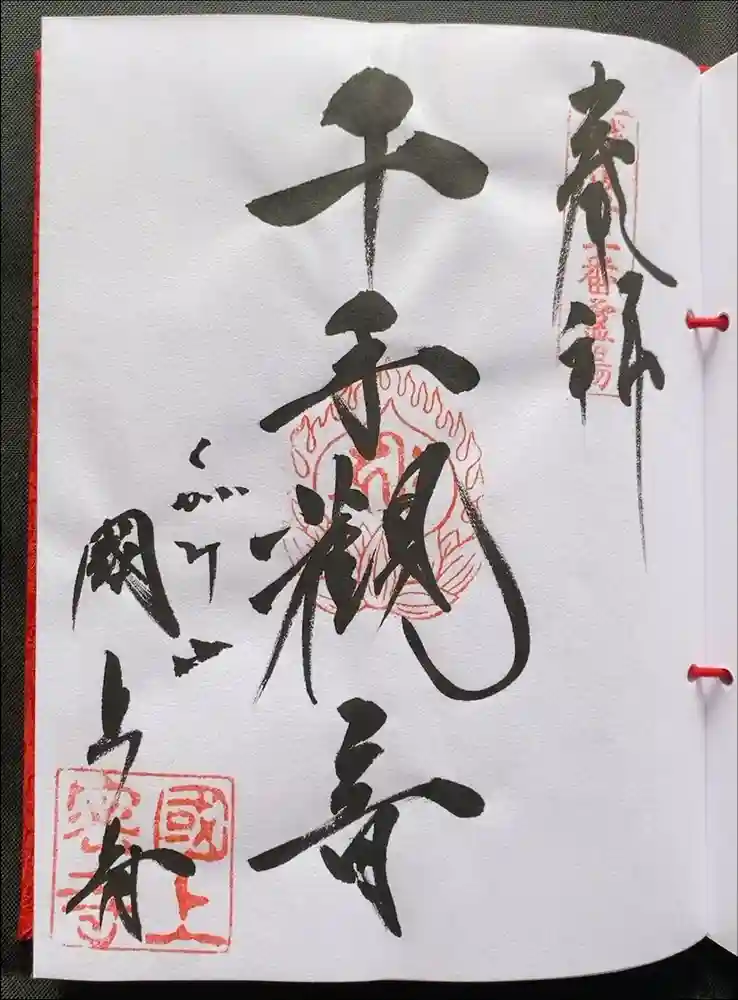 奉拝
一番霊場
千手観音
くがみ山
國上寺
國上
寺